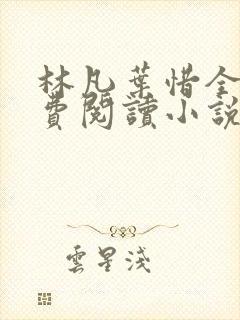 林凡葉惜全
費閱讀小說
雲星淺